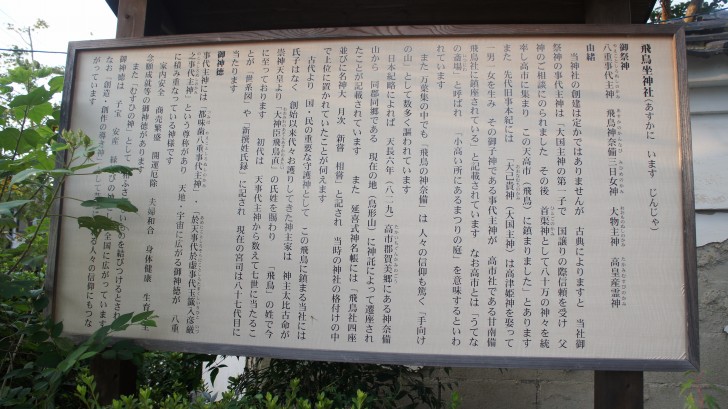 飛鳥坐神社(あすかに います じんじゃ)
御祭神
八重事代主神 飛鳥神奈備三日女神 大物主神 高皇産霊神
由緒
当神社の創建は定かではありませんが 古典によりますと 当社御
祭神の事代主神は「大国主神の第一子で 国譲りの際信頼を受け 父
神のご相談にのられました その後 首渠神として八十万の神々を統
率し高市に集まり この天高市(飛鳥)に鎮まりました」とあります
また 先代旧事本紀には 「大己貴神(大国主神)は高津姫神を娶って
一男一女を生み その御子神である事代主神が 高市社である甘南備
飛鳥社に鎮座されている」と記載されています なお高市とは「うてな
の斎場」と呼ばれ 「小高い所にあるまつりの庭」を意味するといわ
れています
また 万葉集の中でも「飛鳥の神奈備」は 人々の信仰も篤く「手向け
の山」として数多く謳われています
日本紀略によれば 天長六年(八二九)高市郡賀美郷にある神奈備
山から 同郡同郷である 現在の地(鳥形山)に神託によって遷座され
たことが記載されています また 延喜式神名帳には「飛鳥社四座
並びに名神大 月次 新嘗 相嘗」と記され 当時の神社の格付けの中
で上位に置かれていたことが伺えます
古代より 国・民の重要な守護神として この飛鳥に鎮まる当社には
氏子はなく 創始以来代々お護りしてきた神主家は 神主太比古命が
崇神天皇より「大神臣飛鳥直」の氏姓を賜わり 「飛鳥」の姓で今
に至っております 初代は 天事代主神から数えて七世に当たるこ
とが「世系図」や「新撰姓氏録」に記され 現在の宮司は八十七代目に
当たります
御神徳
事代主神には「都味歯八重事代主神」・「於天事代於虚事代玉籤入彦厳
之事代主神」という尊称があり 天地・宇宙に広がる御神徳が 八重
に積み重なっている神様です
家内安全 商売繁盛 開運厄除 夫婦和合 身体健康
念願成就等の御神徳があります
また「むすひの神」として を結びつけるとさ
御神徳は 子宝 安産 縁 全国に広がっています
なお「創造・創作の尊 る人々の信仰にもつな
がっています